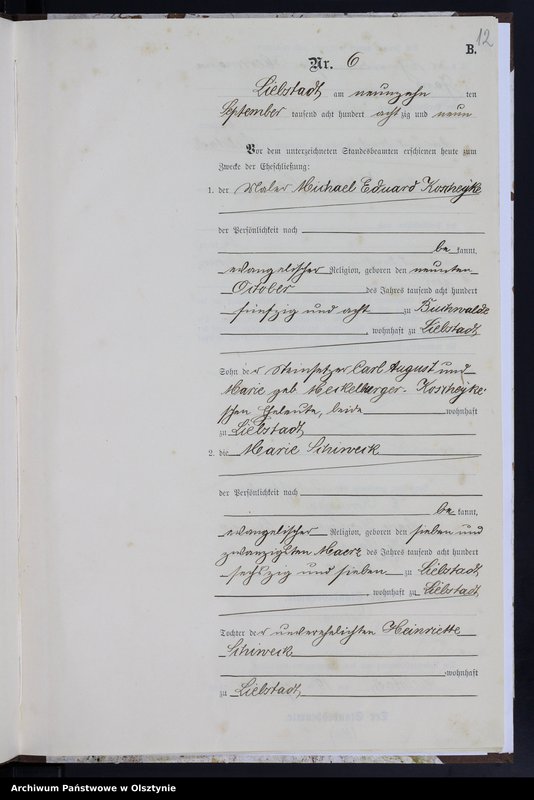 12
B.
Nr. 6
Liebstadt am neunzehn ten
September tausend acht hundert acht zig und neun
Vor dem unterzeichneten Standesbeamten erschienen heute zum
Zwecke der Eheschließung:
1. der Maler Michael Eduard Koscheyke
der Persönlichkeit nach
be kannt,
evangelischer Religion, geboren den neunten
October des Jahres tausend acht hundert
fünfzig und acht zu Buchwalde
, wohnhaft zu Liebstadt
Sohn der Steinsetzer Carl August und
Marie geb. Meckelburger- Koscheyke
schen Eheleute, beide wohnhaft
zu Liebstadt
2. die Marie Schiweck
der Persönlichkeit nach
be kannt,
evangelischer Religion, geboren den sieben und
zwanzigsten Maerz des Jahres tausend acht hundert
sechszig und sieben zu Liebstadt
, wohnhaft zu Liebstadt
Tochter der unverehelichten Heinriette
Schiweck
, wohnhaft
zu Liebstadt
Archiwum Państwowe w Olsztynie